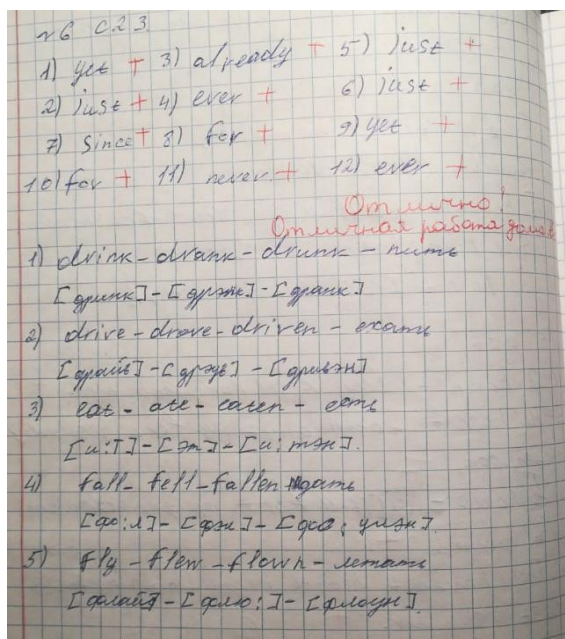 №6 С.23.
1) yet + 3) already + 5) just +
2) just + 4) ever + 6) just +
7) since + 8) for + 9) yet +
10) for + 11) never + 12) ever +
Отлично!
Отличная работа дома
1) drink - drank - drunk - пить
[дринк] - [дрэнк] - [дранк]
2) drive - drove - driven - ехать
[драйв] - [дрэув] - [дривэн]
3) eat - ate - eaten - есть
[и:т] - [эт] - [и:тэн].
4) fall - fell - fallen - падать
[фо:л] - [фэл] -
5) fly - flew - flown - летать
[флай] - [флю:] - [флоун].